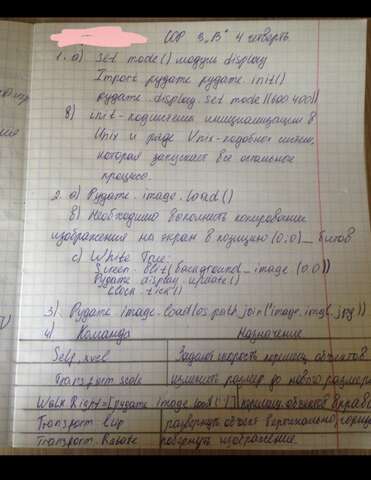 СОР 3 „В" 4 четверть
1. а) set mode() модуль display
Import pygame pygame.init()
pygame.display.set mode((600.400))
в) init - подсистема инициализации в
Unix и ряде Unix-подобных систем,
которая запускает все остальные
процессы.
2. а) Pygame.image.load()
б) Необходимо выполнить копирование
изображения на экран в позицию (0.0)_битов
с) White True:
Screen.blit(background_image(0.0))
Pygame display.update()
Clock.tick()
3) Pygame image.load(os.path.join("image.img1.jpg"))
4) Команда Назначение
Self.xvel Задает скорость перемещ. объектов
Transform scale изменить размер до нового размера
Walk Right=[pygame.image.load(')'] перемещ. объектов вправо
Transform flip развернуть объект вертикально, гориз
Transform.Rotate повернуть изображение